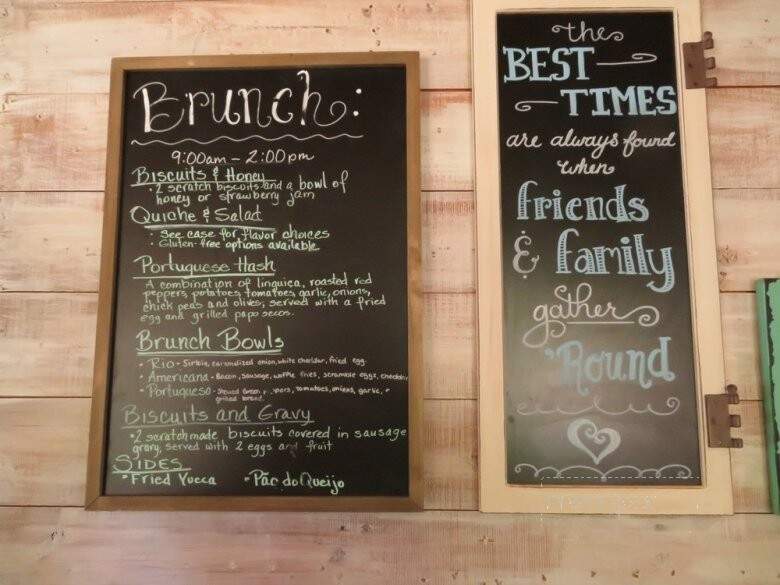 Brunch:
9:00am - 2:00pm
Biscuits & Honey
• 2 scratch biscuits and a bowl of
honey or strawberry jam
Quiche & Salad
• See case for flavor choices
• Gluten-free options available
Portuguese Hash
A combination of linguica, roasted red
peppers, potatoes, tomatoes, garlic, onions,
chick peas and olives, served with a fried
egg and grilled papo secos.
Brunch Bowls
• Rio - Sirloin, caramelized onion, white cheddar, fried egg.
• Americana - Bacon, sausage, waffle fries, scramble eggs, cheddar
• Portuguesa - Sliced Green peppers, tomatoes, onions, garlic, +
grilled bread.
Biscuits and Gravy
• 2 scratchmade biscuits covered in sausage
gravy, served with 2 eggs and fruit
SIDES
• Fried Yucca • Pão do Queijo
the
BEST
TIMES
are always found
when
friends
& family
gather
'Round